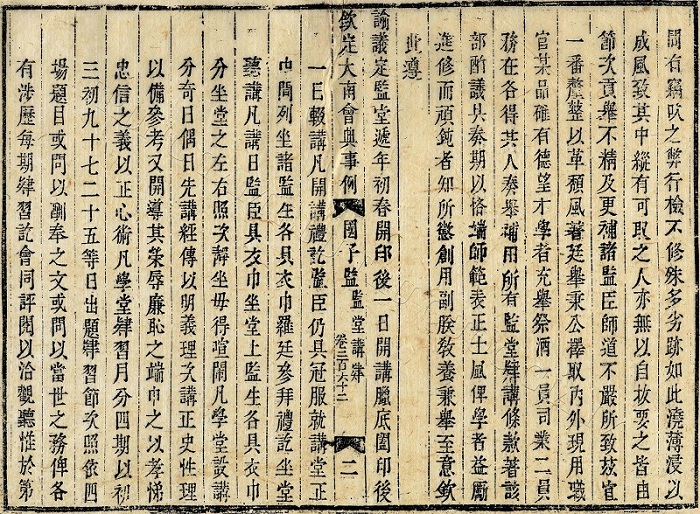 間有竊吹之弊行檢不修殊多劣跡如此澆薄浸以
成風致其中縱有可取之人亦無以自拔要之皆由
節次貢舉不精及更補諸監臣師道不嚴所致茲宜
一番整整以革頹風著廷舉秉公擇取內外現用職
官某品確有德望才學者充舉祭酒一員司業二員
務在各得其人奏舉補用所有監堂肄講條款著該
部酌議具奏期以恪端師範表正士風俾學者益勵
進修而頑鈍者知所懲創用副朕敎養秉舉至意欽
此遵
諭議定監堂遞年初春開印後一日開講臘底閣印後
欽定大南會典事例 國子監 監堂講肄 卷二百六十二 二
一日輟講凡開講禮訖監臣仍具冠服就講堂正
中間列坐諸監生各具衣巾羅廷參拜禮訖坐堂
聽講凡講日監臣具衣巾坐堂上監生各具衣巾
分坐堂之左右照次講坐毋得喧鬧凡學堂設講
分奇日偶日先講經傳以明義理次講正史性理
以備參考又開導其榮辱廉恥之端申之以孝悌
忠信之義以正心術凡學堂肄習月分四期以初
三初九十七二十五等日出題肄習節次照依四
場題目或問以酬奉之文或問以當世之務俾各
有涉歷每期肄習訖會同評閱以洽觀聽惟於第